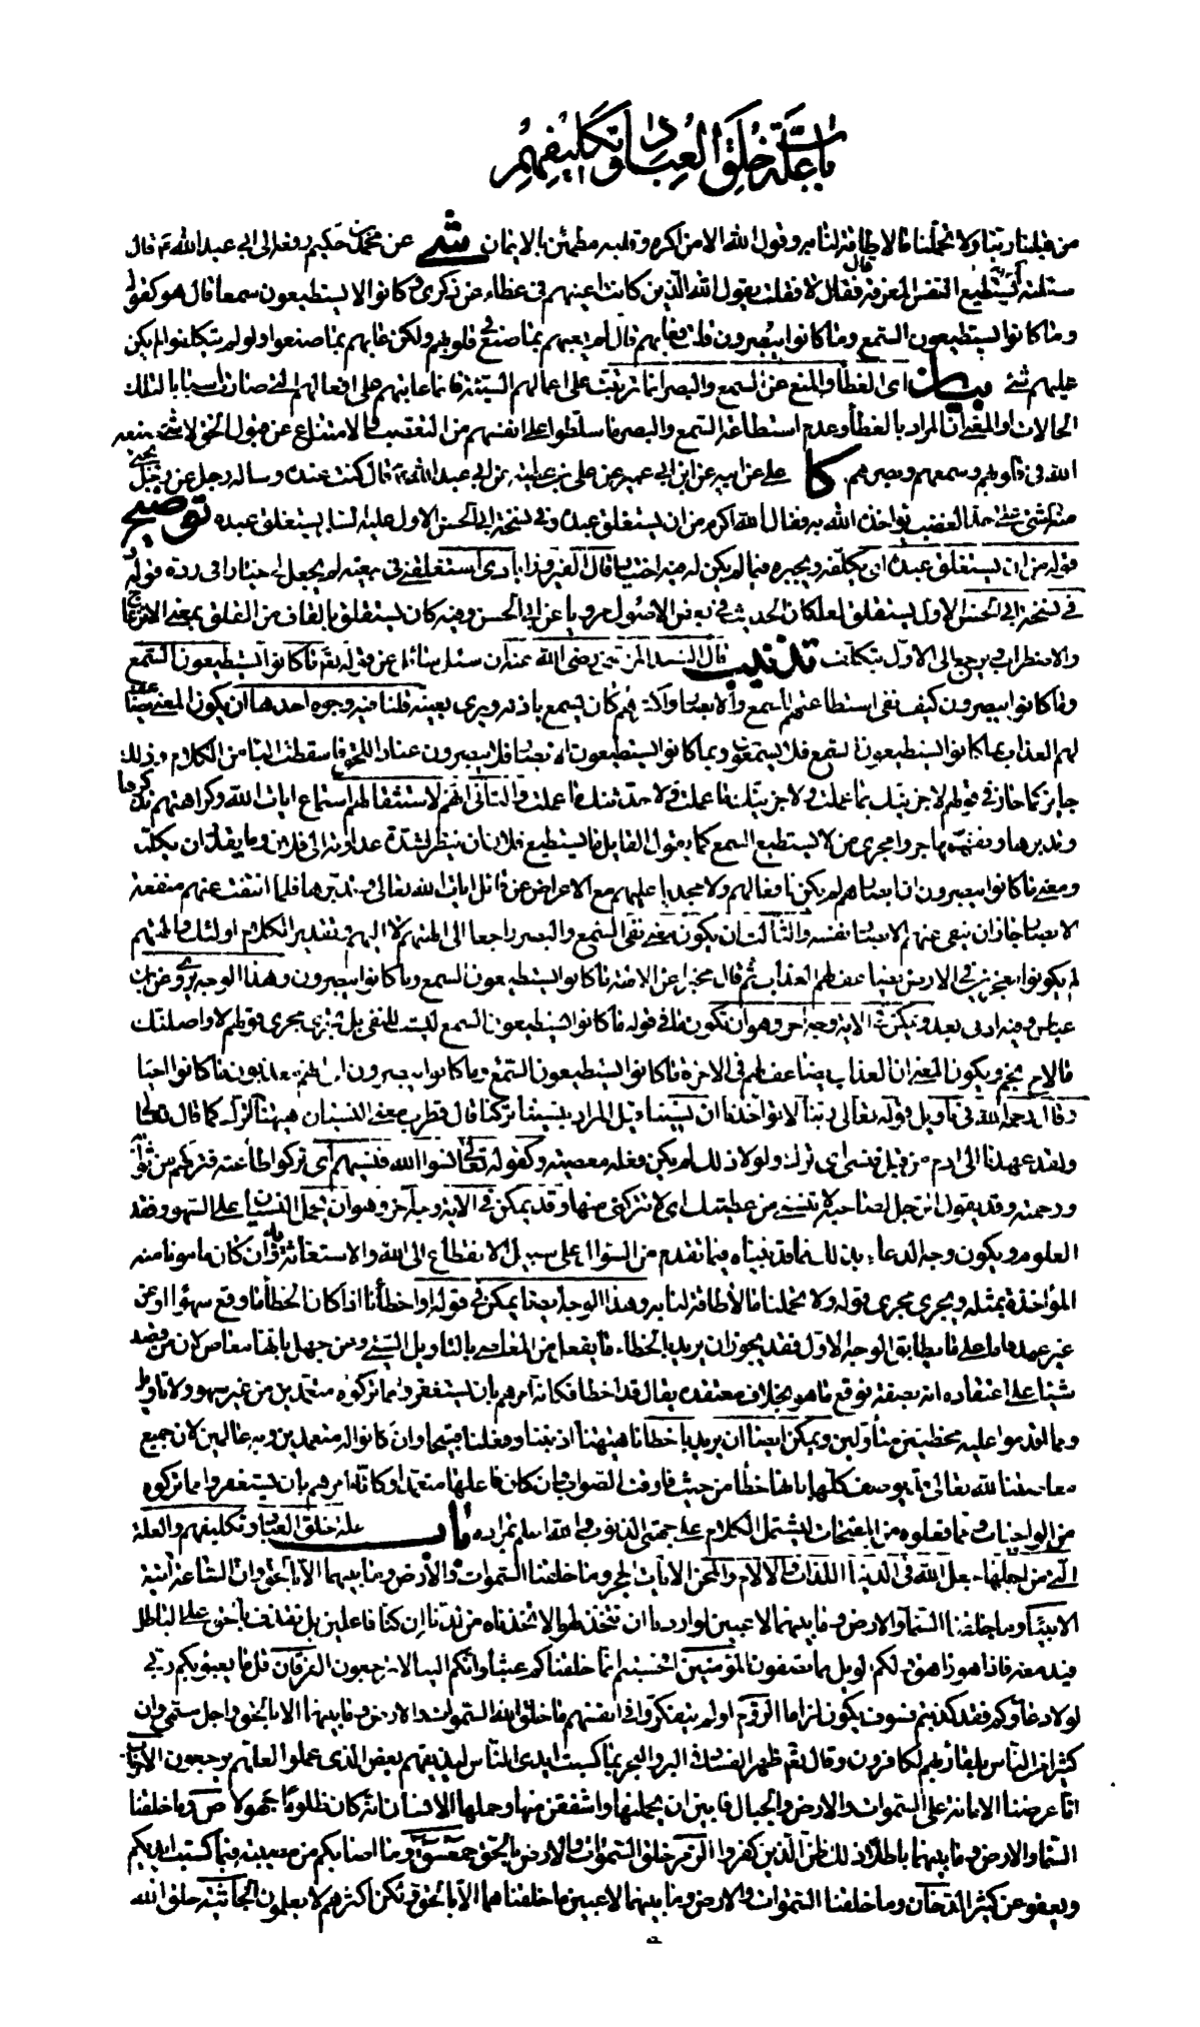 باب علة خلق العباد وتكليفهم
من قبلنا ربنا ولا تحملنا ما لا طاقة لنا به وقول الله الا من اكره وقلبه مطمئن بالايمان شى عن محمد بن حكيم رفعه الى ابي عبد الله ع قال
سئلته أتستطيع النفس المعرفة قال فقال لا فقلت يقول الله الذين كانت اعينهم في غطاء عن ذكرى وكانوا لا يستطيعون سمعا قال هو كقوله
وما كانوا يستطيعون السمع وما كانوا يبصرون قلت فعابهم قال لم يعبهم بما صنع في قلوبهم ولكن عابهم بما صنعوا ولو لم يتكلفوا لم يكن
عليهم شئ بيان اى الغطأ والمنع عن السمع والبصر انما ترتبت على اعمالهم السيئة فانما عابهم على افعالهم التي صارت اسبابا لتلك
الحالات او المعنى ان المراد بالغطأ وعدم استطاعة السمع والبصر ما سلطوا على انفسهم من التعصب والامتناع عن قبول الحق لا شئ صنعه
الله في قلوبهم وسمعهم وبصرهم كا على عن ابيه عن ابن ابي عمير عن على بن عطية عن ابي عبد الله ع قال كنت عنده وساله رجل عن رجل يجئ
منه الشئ على حد الغضب يؤاخذه الله به فقال الله اكرم من ان يستغلق عبده وفي نسخة ابي الحسن الاول عليه السلم يستقلق عبده توضيح
قوله من ان يستغلق عبده اى يكلفه ويجبره فيما لم يكن له فيه اختيار قال الفيروزابادى استغلقني في بيعته لم يجعل لي خيارا في رده قوله
في نسخة ابي الحسن الاول يستقلق لعله كان الحديث في بعض الاصول مرويا عن ابي الحسن وفيه كان يستقلق بالقاف من القلق بمعنى الانزعاج
والاضطراب ويرجع الى الاول بتكلف تذنيب قال السيد المرتضى رضى الله عنه ان سئل سائل عن قوله تعالى ما كانوا يستطيعون السمع
وما كانوا يبصرون كيف نفى استطاعتهم للسمع والابصار واكثرهم كان يسمع باذنه ويرى بعينه قلنا فيه وجوه احدها ان يكون المعنى يضاعف
لهم العذاب بما كانوا يستطيعون السمع فلا يسمعون وبما كانوا يستطيعون الابصار فلا يبصرون عنادا للحق فاسقطت البا من الكلام وذلك
جايز كما جاز في قولهم لاجزينك بما عملت ولاجزينك ما عملت ولاحدثنك ما عملت والثاني انهم لاستثقالهم استماع ايات الله وكراهتهم تذكرها
وتدبرها وتفهمها جروا مجرى من لا يستطيع السمع كما يقول القايل ما يستطيع فلان ان ينظر لشدة عداوته الى فلان وما يقدر ان يكلمه
ومعنى ما كانوا يبصرون ان ابصارهم لم يكن نافعا لهم ولا مجديا عليهم مع الاعراض عن تامل ايات الله تعالى وتدبرها فلما انتفت عنهم منفعة
الابصار جاز ان ينفى عنهم الابصار نفسه والثالث ان يكون معنى نفى السمع والبصر راجعا الى الهتهم لا اليهم وتقدير الكلام اولئك والهتهم
لم يكونوا معجزين في الارض يضاعف لهم العذاب ثم قال مخبرا عن الالهة ما كانوا يستطيعون السمع وما كانوا يبصرون وهذا الوجه يروى عن ابن
عباس وفيه ادنى بعد ويمكن في الاية وجه اخر وهو ان تكون ما في قوله ما كانوا يستطيعون السمع ليست للنفى بل تجرى مجرى قولهم لاواصلنك
ما لاح نجم ويكون المعنى ان العذاب يضاعف لهم في الاخرة ما كانوا يستطيعون السمع وما كانوا يبصرون اى انهم معذبون ما كانوا احياء
وقال رحمه الله في تأويل قوله تعالى ربنا لا تؤاخذنا ان نسينا قيل المراد بنسينا تركنا قال قطرب معنى النسيان هيهنا الترك كما قال تعالى
ولقد عهدنا الى ادم من قبل فنسى اى ترك ولولا ذلك لم يكن فعله معصية وكقوله تعالى نسوا الله فنسيهم اى تركوا طاعته فتركهم من ثوابه
ورحمته وقد يقول الرجل لصاحبه لا تنسني من عطيتك اى لا تتركني منها وقد يمكن في الاية وجه اخر وهو ان يحمل النسيان على السهو وفقد
العلوم ويكون وجه الدعاء بذلك ما قد بيناه فيما تقدم من السؤال على سبيل الانقطاع الى الله والاستغاثة به وان كان مامونا منه
المؤاخذة بمثله ويجرى مجرى قوله ولا تحملنا ما لا طاقة لنا به وهذا الوجه ايضا يمكن في قوله او اخطأنا اذا كان الخطأ ما وقع سهوا او عن
غير عمد فاما على ما يطابق الوجه الاول فقد يجوز ان يريد بالخطاء ما يفعل من المعاصى بالتاويل السيئ وعن جهل بانها معاص لان من قصد
شيئا على اعتقاده انه بصفة فوقع ما هو بخلاف معتقده يقال قد اخطا فكانه امرهم بان يستغفروا مما تركوه متعمدين من غير سهو ولا تاويل
ومما اقدموا عليه مخطئين متأولين ويمكن ايضا ان يريد باخطانا هيهنا اذنبنا وفعلنا قبيحا وان كانوا له متعمدين وبه عالمين لان جميع
معاصينا لله تعالى قد يوصف كلها بانها خطأ من حيث فارقت الصواب وان كان فاعلها متعمدا وكانه امرهم بان يستغفروا مما تركوه
من الواجبات ومما فعلوه من المقبحات ليشتمل الكلام على جهتى الذنوب والله اعلم بمراده باب علة خلق العباد وتكليفهم والعلة
التي من اجلها جعل الله في الدنيا اللذات والالام والمحن الايات الحجر وما خلقنا السموات والارض وما بينهما الا بالحق وان الساعة لاتية
الانبياء وما خلقنا السماء والارض وما بينهما لاعبين لو اردنا ان نتخذ لهوا لاتخذناه من لدنا ان كنا فاعلين بل نقذف بالحق على الباطل
فيدمغه فاذا هو زاهق ولكم الويل مما تصفون المؤمنين افحسبتم انما خلقناكم عبثا وانكم الينا لا ترجعون الفرقان قل ما يعبؤ بكم ربي
لولا دعاؤكم فقد كذبتم فسوف يكون لزاما الروم اولم يتفكروا في انفسهم ما خلق الله السموات والارض وما بينهما الا بالحق واجل مسمى وان
كثيرا من الناس بلقاء ربهم لكافرون وقال تعالى ظهر الفساد في البر والبحر بما كسبت ايدى الناس ليذيقهم بعض الذى عملوا لعلهم يرجعون الاحزاب
انا عرضنا الامانة على السموات والارض والجبال فابين ان يحملنها واشفقن منها وحملها الانسان انه كان ظلوما جهولا ص وما خلقنا
السماء والارض وما بينهما باطلا ذلك ظن الذين كفروا الزمر خلق السموات والارض بالحق حمعسق وما اصابكم من مصيبة فبما كسبت ايديكم
ويعفو عن كثير الدخان وما خلقنا السموات والارض وما بينهما لاعبين ما خلقناهما الا بالحق ولكن اكثرهم لا يعلمون الجاثية خلق الله